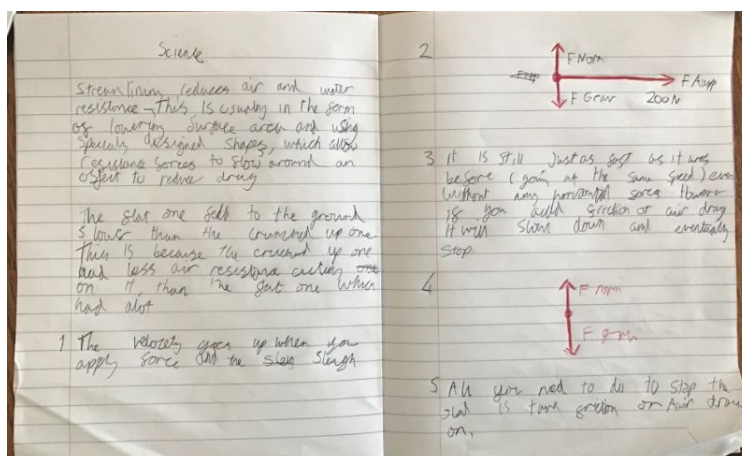 Science
Streamlining reduces air and water
resistance - This is usually in the form
of lowering surface area and using
specialy designed shapes, which allow
resistance forces to flow around an
object to reduce drag
The flat one fell to the ground
slower than the crunched up one
This is because the cruched up one
had less air resistance acting
on it, than the flat one which
had alot
1 The velocity goes up when you
apply force the sleigh
2
F Norm
F Aapp
F Grav 200N
3 It is still just as fast as it was
before (going at the same speed) even
without any horizontal force However
if you add friction or air drag
it will slow down and eventually
stop
4
F norm
F grav
5 All you need to do to stop the
is turn friction or Aair
on.